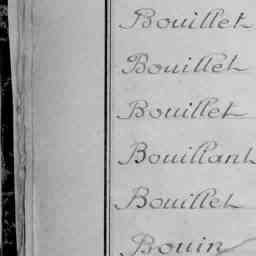 Bouillet
Bouillet
Bouillet
Bouillant
Bouillet
Bouin